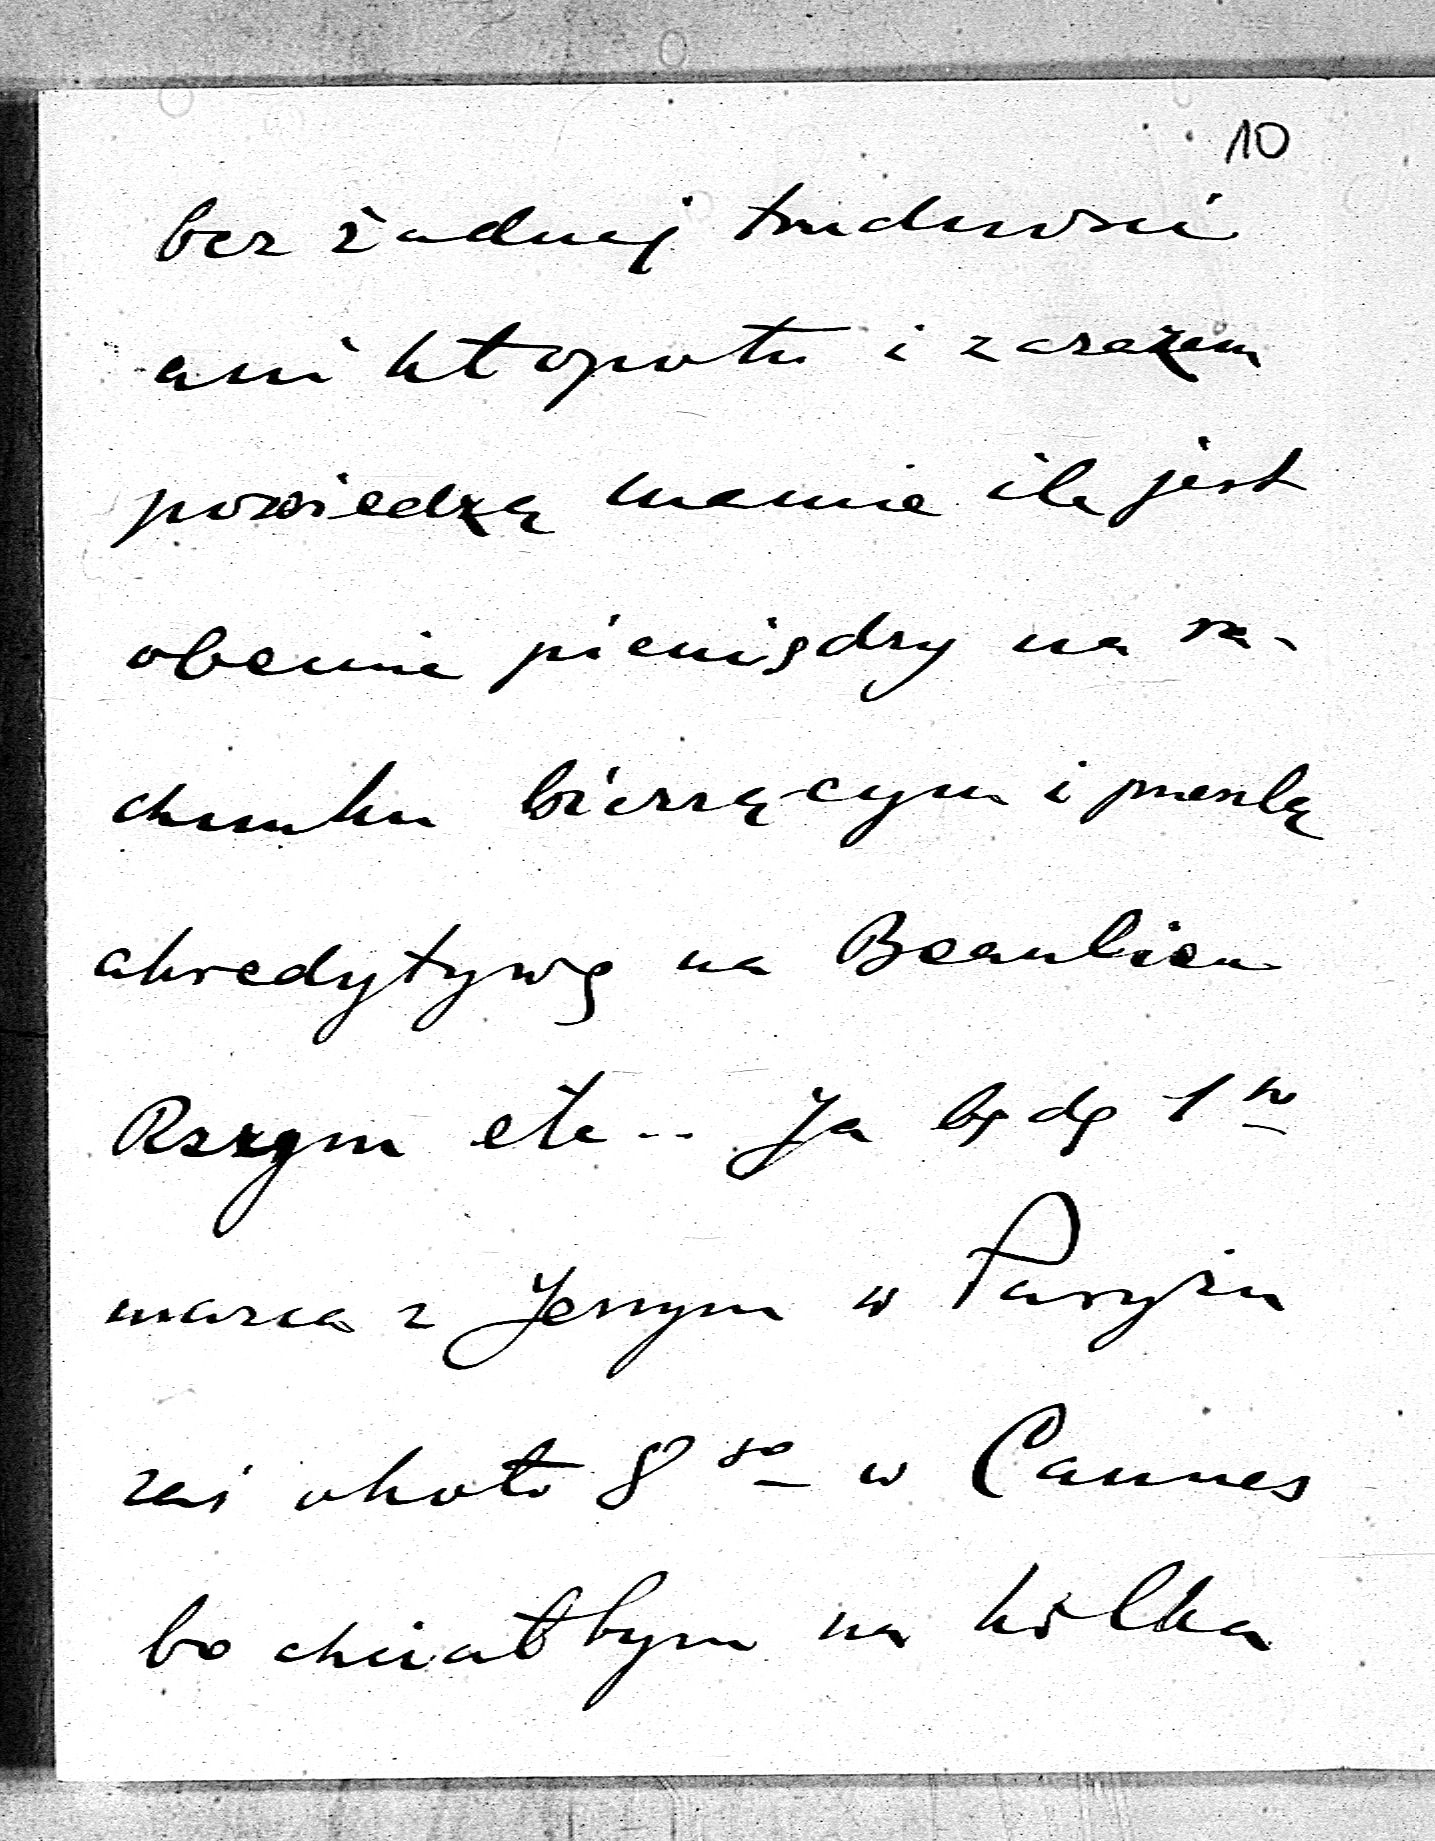 10
bez żadnej trudności
ani kłopotu i zarazem
powiedzą mamie ile jest
obecnie pieniędzy na ra-
chunku bieżącym i prześlą
akredytywę na Beaulieu
Rzym etc.. Ja będę 1go
marca z Jerzym w Paryżu
zaś około 8go w Cannes
bo chciałbym na kilka